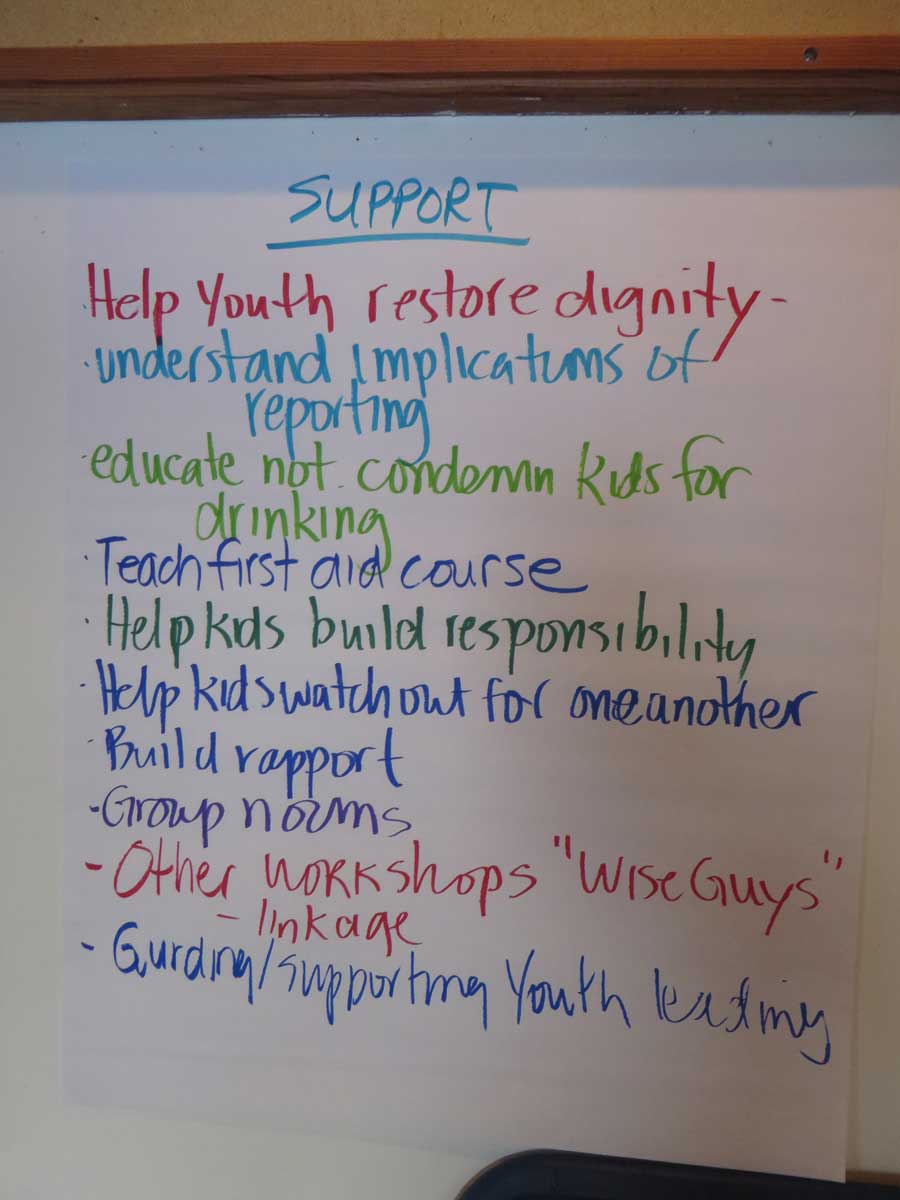 SUPPORT
·Help Youth restore dignity-
·understand implications of
reporting
·educate not condemn kids for
drinking
·Teach first aid course
·Help kids build responsibility
·Help kids watch out for one another
·Build rapport
-Group norms
- Other workshops "Wise Guys"
- linkage
- Guiding/supporting Youth leading